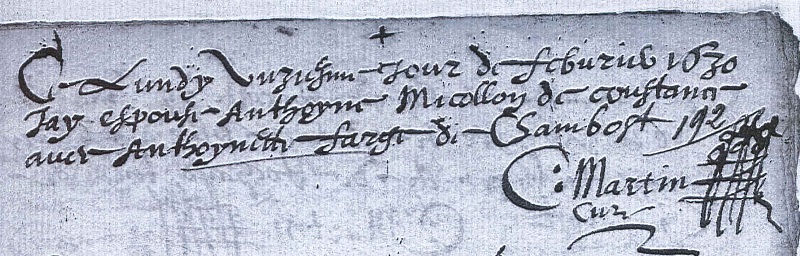 Ce Lundy Unziesme Jour de feburier 1630
Jay espousé Anthoyne Micollon de coustance
avec Anthoynette farge de Chambost 192
C: Martin
Curé